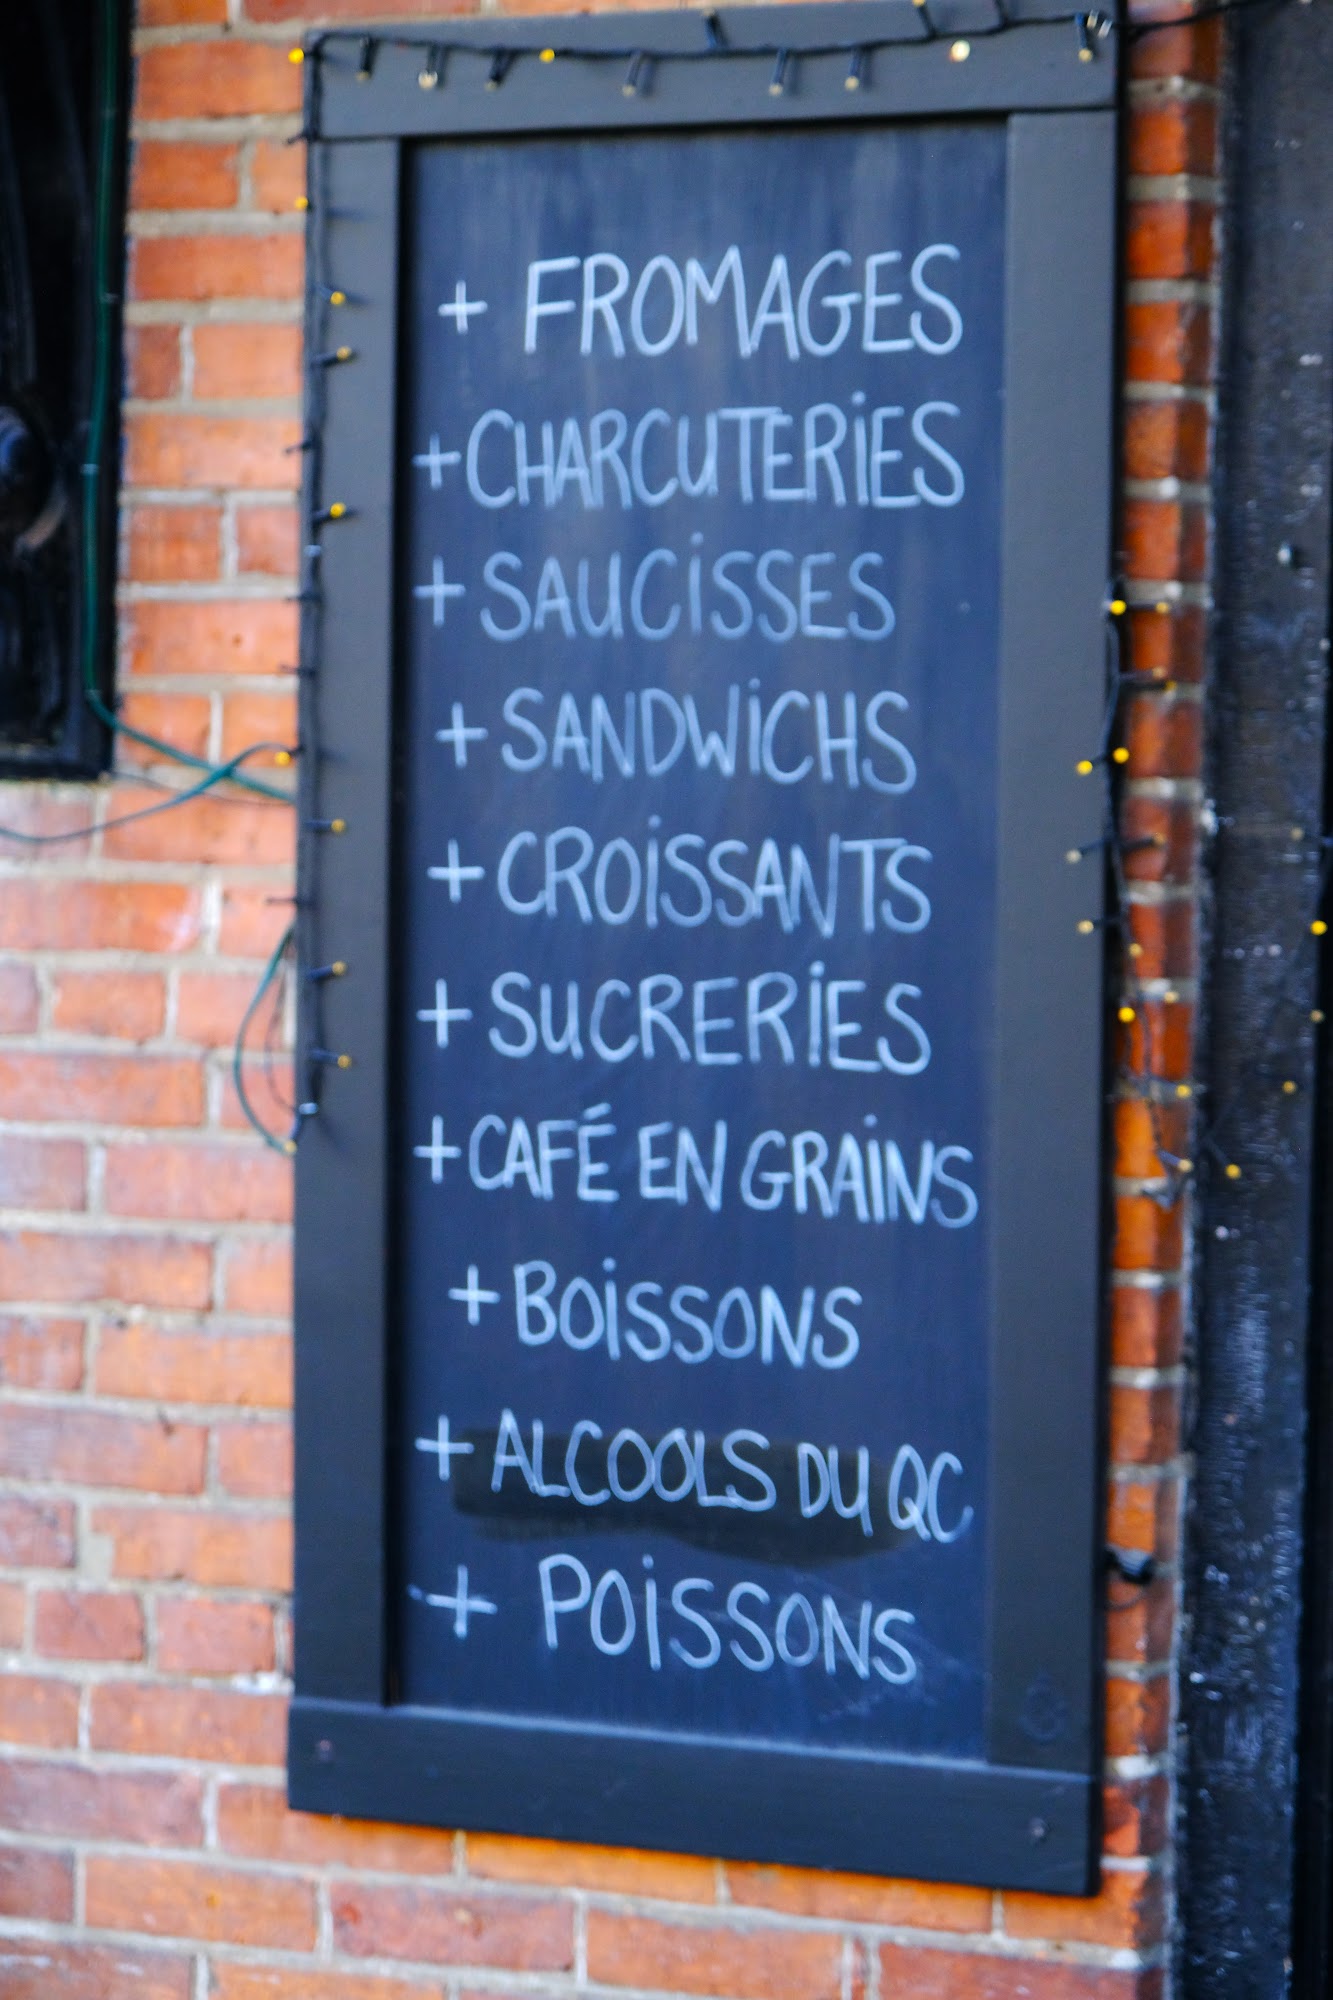 + FROMAGES
+ CHARCUTERIES
+ SAUCISSES
+ SANDWICHS
+ CROISSANTS
+ SUCRERIES
+ CAFÉ EN GRAINS
+ BOISSONS
+ ALCOOLS DU QC
+ POISSONS